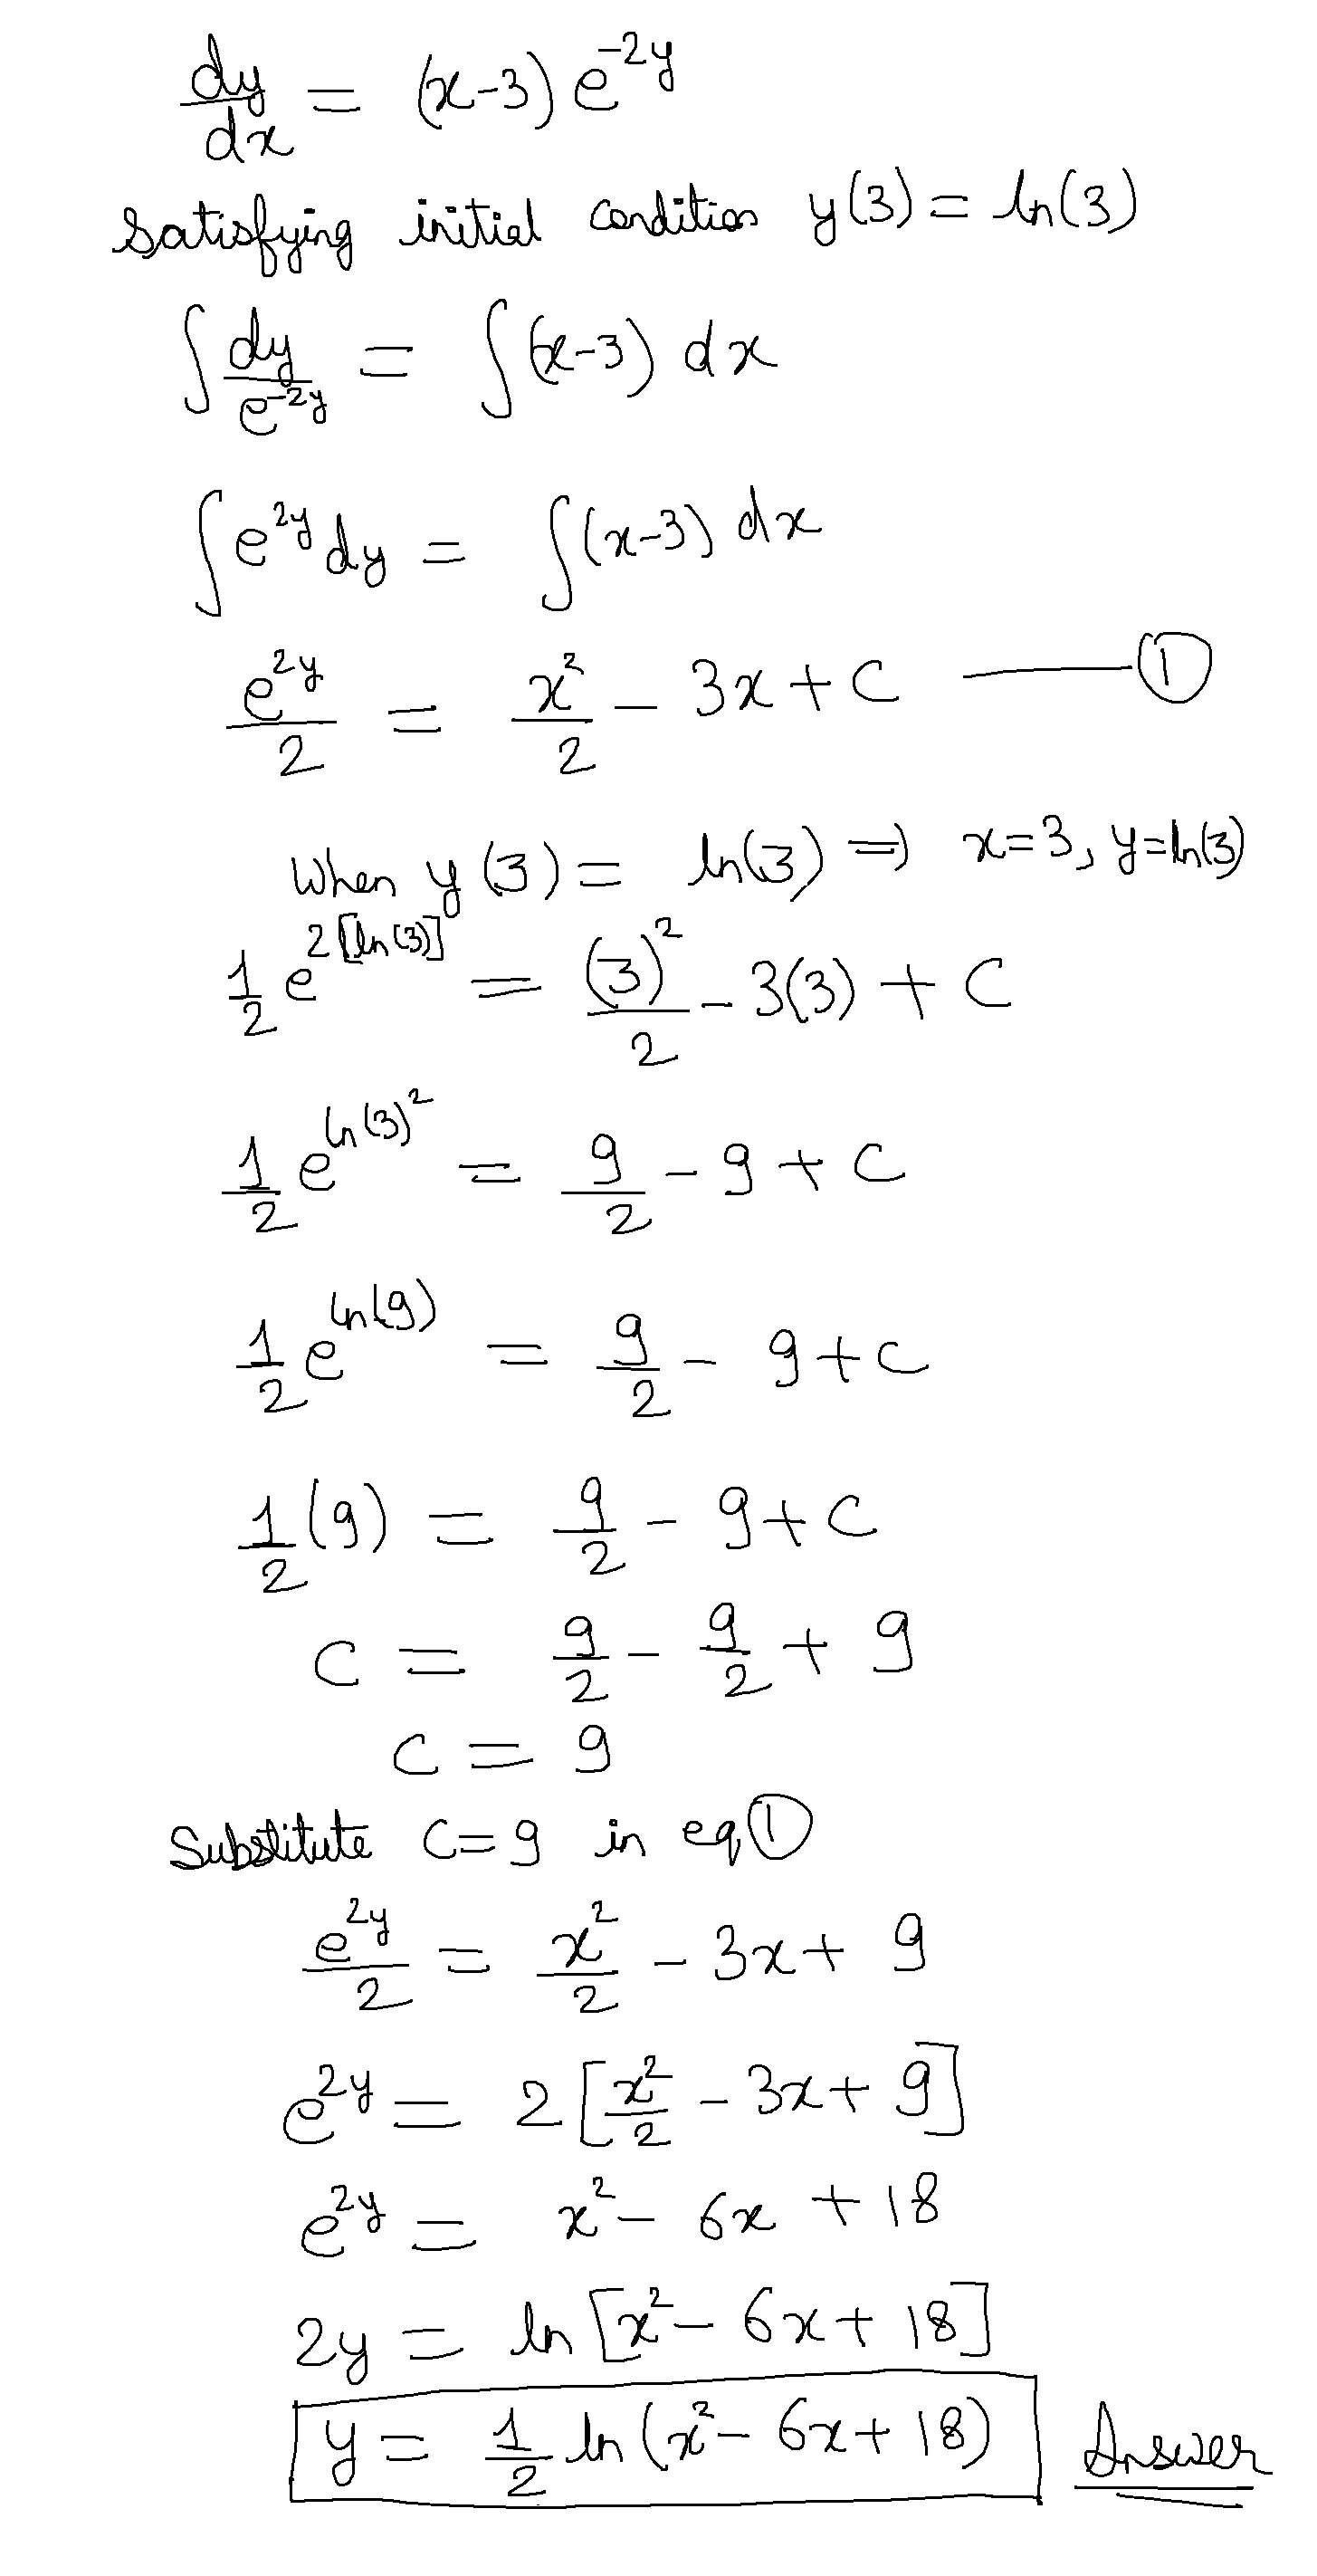 dy/dx = (x-3) e^{-2y}
Satisfying initial condition y(3) = ln(3)
∫ dy/e^{-2y} = ∫ (x-3) dx
∫ e^{2y} dy = ∫ (x-3) dx
e^{2y}/2 = x²/2 - 3x + C —— ①
When y(3) = ln(3) ⇒ x=3, y=ln(3)
1/2 e^{2[ln(3)]} = (3)²/2 - 3(3) + C
1/2 e^{ln(3)²} = 9/2 - 9 + C
1/2 e^{ln(9)} = 9/2 - 9 + C
1/2 (9) = 9/2 - 9 + C
C = 9/2 - 9/2 + 9
C = 9
Substitute C=9 in eq ①
e^{2y}/2 = x²/2 - 3x + 9
e^{2y} = 2 [x²/2 - 3x + 9]
e^{2y} = x² - 6x + 18
2y = ln [x² - 6x + 18]
y = 1/2 ln (x² - 6x + 18) Answer